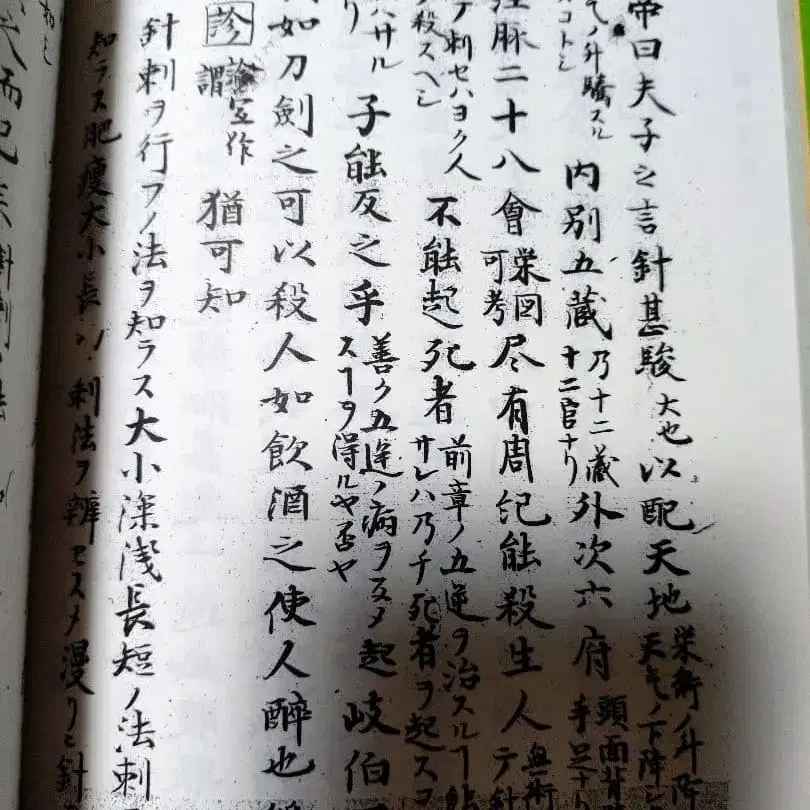 帝曰夫子之言針甚駿 大也 以配天地 栄衛ノ升降 天気ノ下降シ
気ノ升騰スル コトシ 内別五蔵 乃十二蔵 十二官ナリ 外次六府 頭面背 手足ナリ
脈二十八會 栄図可考 尽有周紀能殺生人 無術 テ針
テ刺セハヨク人 ヲ殺スヘシ 不能起死者 前章ノ五逆ヲ治スルヿ能 サレハ乃チ死者ヲ起スヿ
ハサル リ 子能反之乎 善ク五逆ノ病ヲ反メ起 スヿヲ得ルヤ否ヤ 岐伯
如刀劍之可以殺人如飲酒之使人醉也
診 宜作謂 猶可知
針刺ヲ行フノ法ヲ知ラス大小深浅長短ノ法刺
知ラス肥痩大小長 刺法ヲ辨セスメ漫リニ針